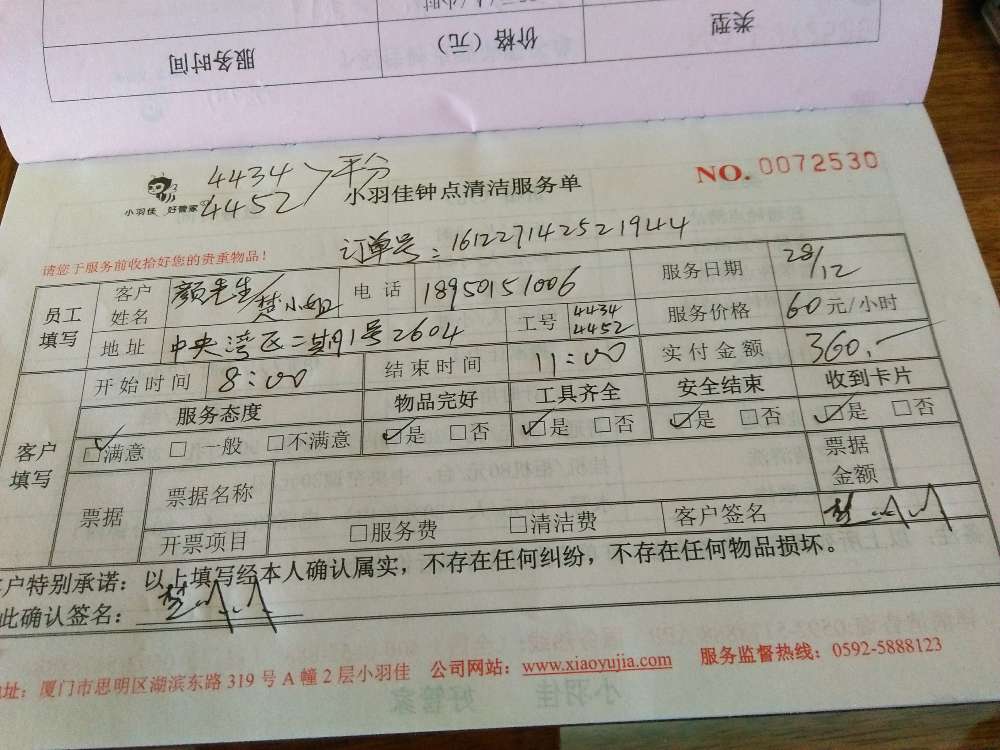 元/人/小时
类型 价格（元） 服务时间
4434
4452 平分
小羽佳 好管家
小羽佳钟点清洁服务单
NO. 0072530
请您于服务前收拾好您的贵重物品！
订单号：161227142521944
员工填写 客户姓名 颜先生/楚小姐 电话 18950151006 服务日期 28/12
地址 中央湾区二期1号2604 工号 4434 4452 服务价格 60元/小时
客户填写 开始时间 8:00 结束时间 11:00 实付金额 360.-
服务态度 物品完好 工具齐全 安全结束 收到卡片
☑满意 □一般 □不满意 ☑是 □否 ☑是 □否 ☑是 □否 ☑是 □否
票据 票据名称 票据金额
开票项目 □服务费 □清洁费 客户签名
客户特别承诺：以上填写经本人确认属实，不存在任何纠纷，不存在任何物品损坏。
此确认签名：
地址：厦门市思明区湖滨东路319号A幢2层小羽佳 公司网站：www.xiaoyujia.com 服务监督热线：0592-5888123